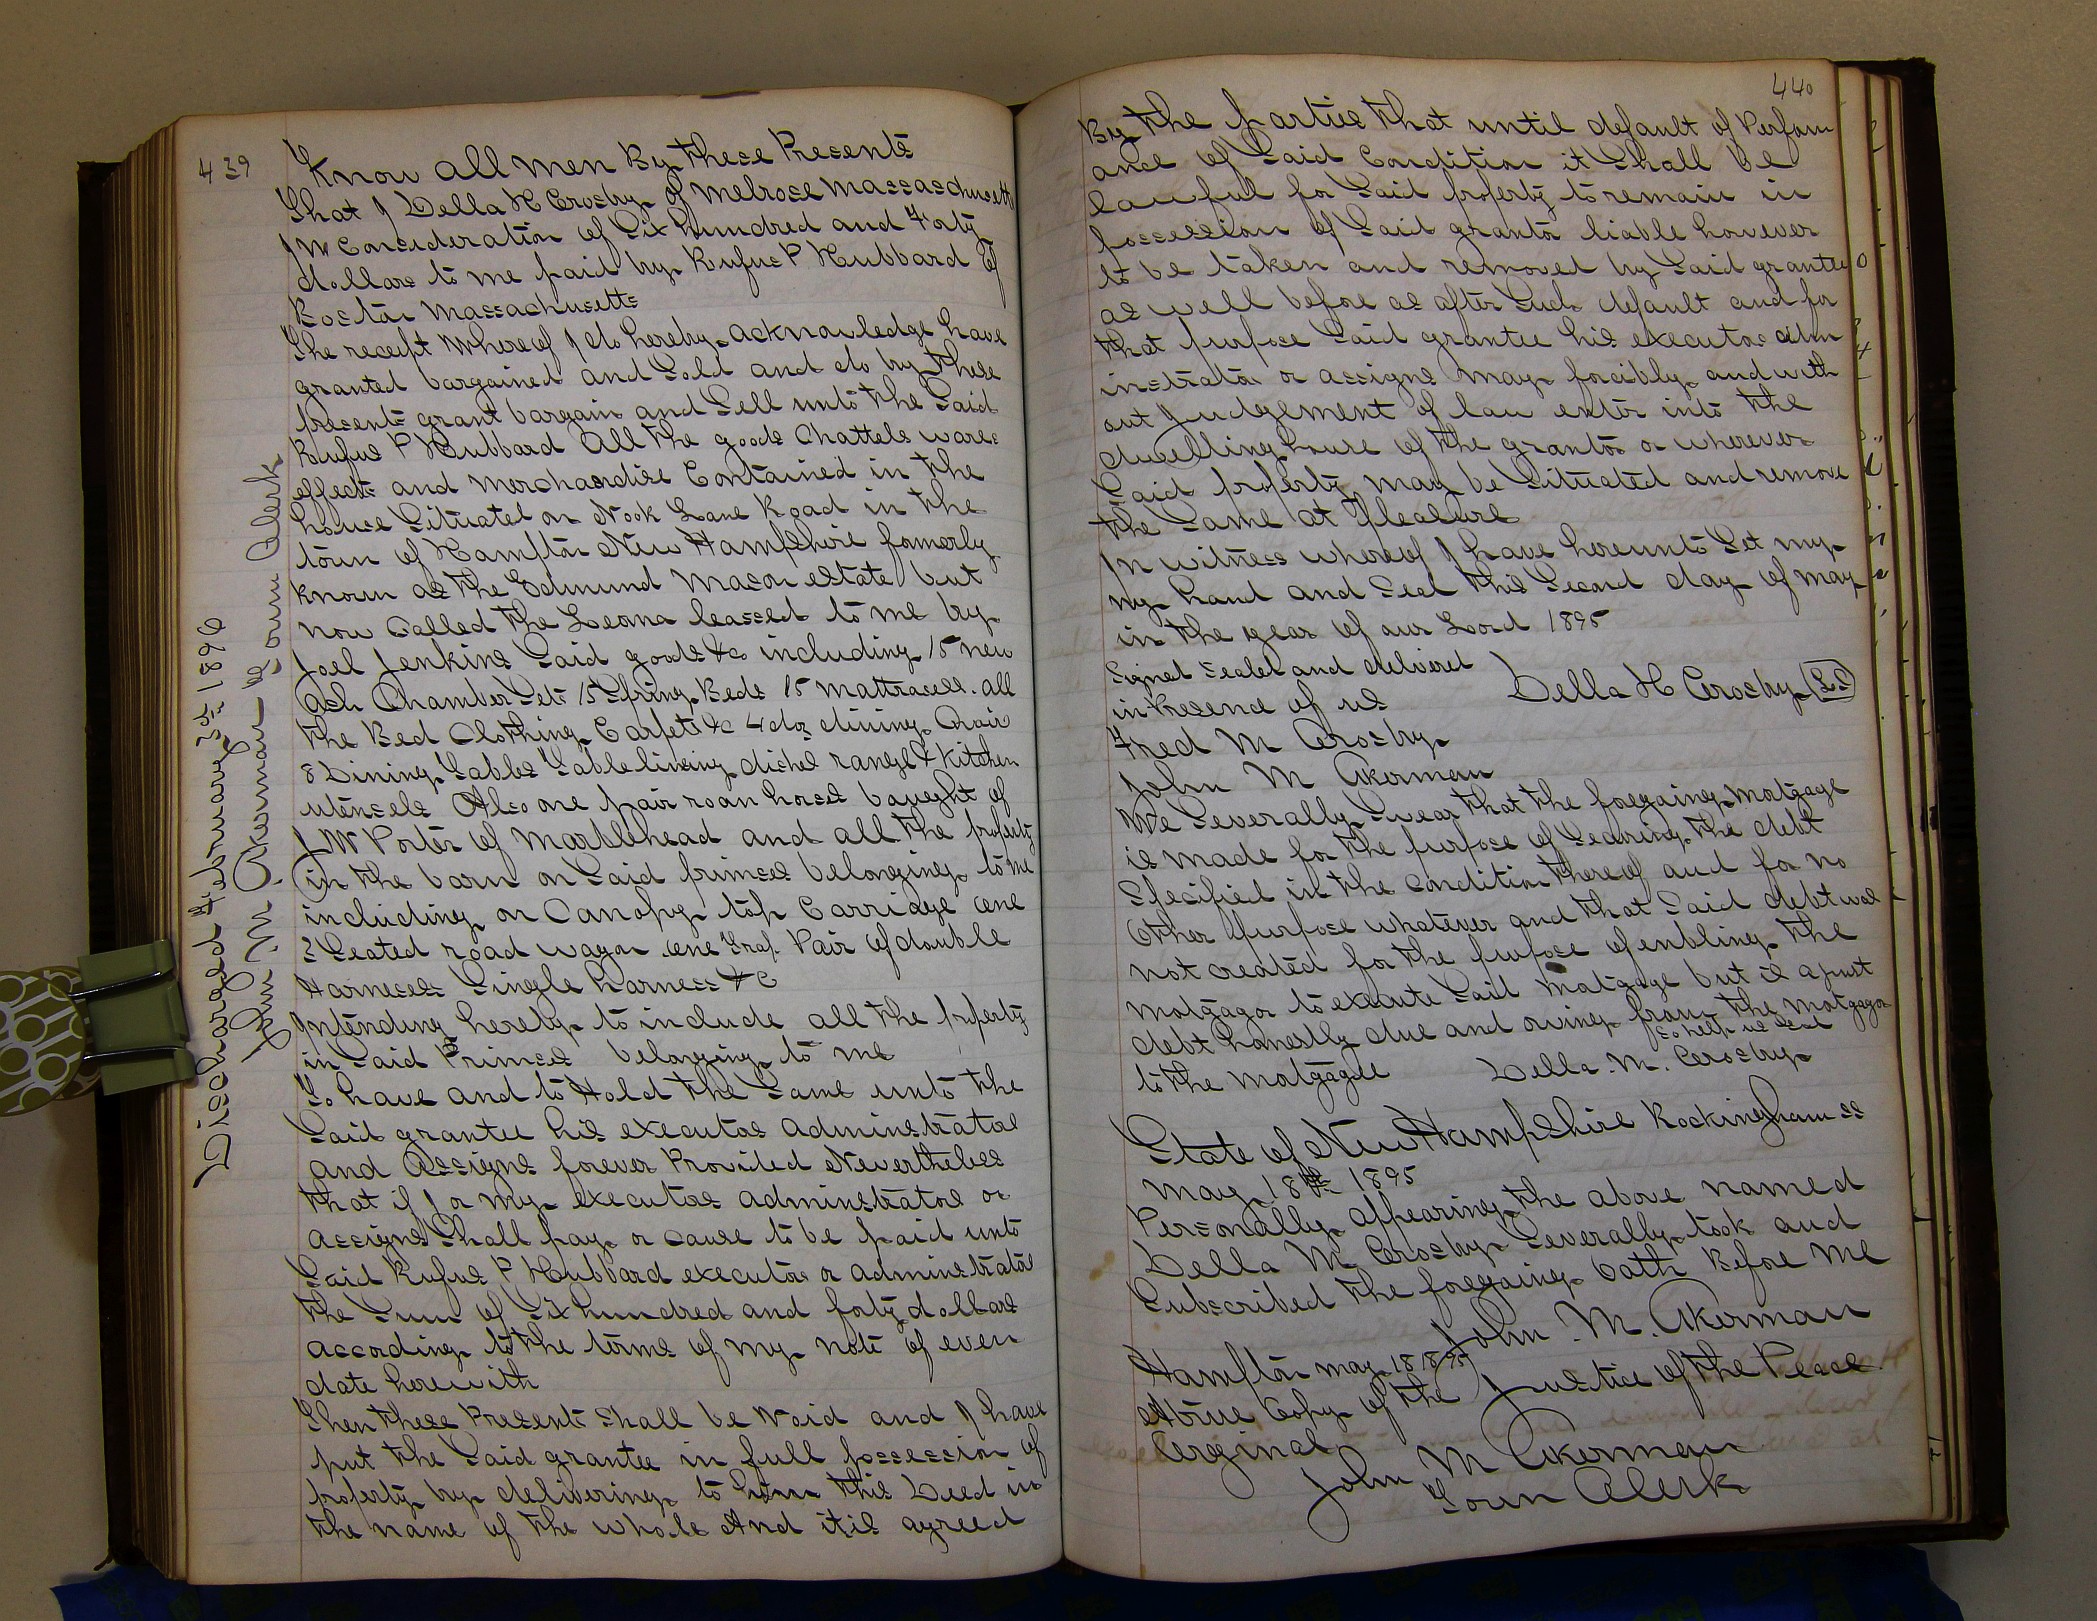 439
Know all men By these Presents
That I Della H Crosby of Melrose Massachusetts
In Consideration of Six hundred and Forty
dollars to me paid by Rufus P Hubbard of
Boston Massachusetts
The receipt Whereof I do hereby acknowledge have
granted bargained and Sold and do by these
presents grant bargain and Sell unto the Said
Rufus P Hubbard all the goods Chattels wares
effects and merchandise Contained in the
house Situated on Nook Lane Road in the
town of Hampton New Hampshire formerly
known as the Edmund Mason estate but
now Called the Leona leased to me by
Joel Jenkins Said goods &c including 15 new
Ash Chamber Sets 15 Spring Beds 15 mattrasess. all
the Bed Clothing Carpets &c 4 doz dining Chair
8 Dining Tables Table lining dishes range & Kitchen
utensels Also one pair roan horses baught of
J W Porter of Marblehead and all the property
in the barn on Said primses belonging to me
including on Canopy top Carriage one
2 Seated road wagon one Trap. Pair of double
Harnesses Single harness &c
Intending hereby to include all the property
in Said Primses belonging to me
To have and to Hold the Same unto the
Said grantee his executors adminstrators
and Assigns forever Provided Nevertheless
that if I or my executors adminstrators or
assigns Shall pay or cause to be paid unto
Said Rufus P Hubbard executors or adminstrators
the Sum of Six hundred and forty dollars
according to the terms of my note of even
date herewith
Then these Presents Shall be Void and I have
put the Said grantee in full possession of
property by delivering to him this Deed in
the name of the whole And it is agreed
Discharged February 3rd 1896
John M. Akerman Town Clerk
440
By the parties that until default of Perform
ance of Said Condition it Shall be
lawful for Said property to remain in
possession of Said grantor liable however
to be taken and removed by Said grantee
as well before as after Such default and for
that purpose Said grantee his executors adm
instrators or assigns may forcibly and with
out Judgement of law enter into the
dwelling house of the grantor or wherever
Said property may be Situated and remove
the Same at pleasure
In witness whereof I have hereunto Set my
my hand and Seal this Second day of may
in the year of our Lord 1895
Signed Sealed and delivered
in Presence of us Della H Crosby L.S
Fred M Crosby
John M Akerman
We Severally Swear that the foregoing Motgage
is made for the purpose of Securing the debt
Specified in the Condition thereof and for no
Other purpose whatever and that Said debt was
not created for the purpose of enbling the
Motgagor to execute Said Motgage but is a just
debt honestly due and owing from the Motgagor
to the Motgagee So help us God
Della. M. Crosby
State of New Hampshire Rockingham ss
May 18th 1895
Personally appearing the above named
Della M Crosby Severally took and
Subscribed the foregoing Oath Before Me
John M. Akerman
Justice of the Peace
Hampton may 18 1895
A true Copy of the
Orginal
John M Akerman
Town Clerk